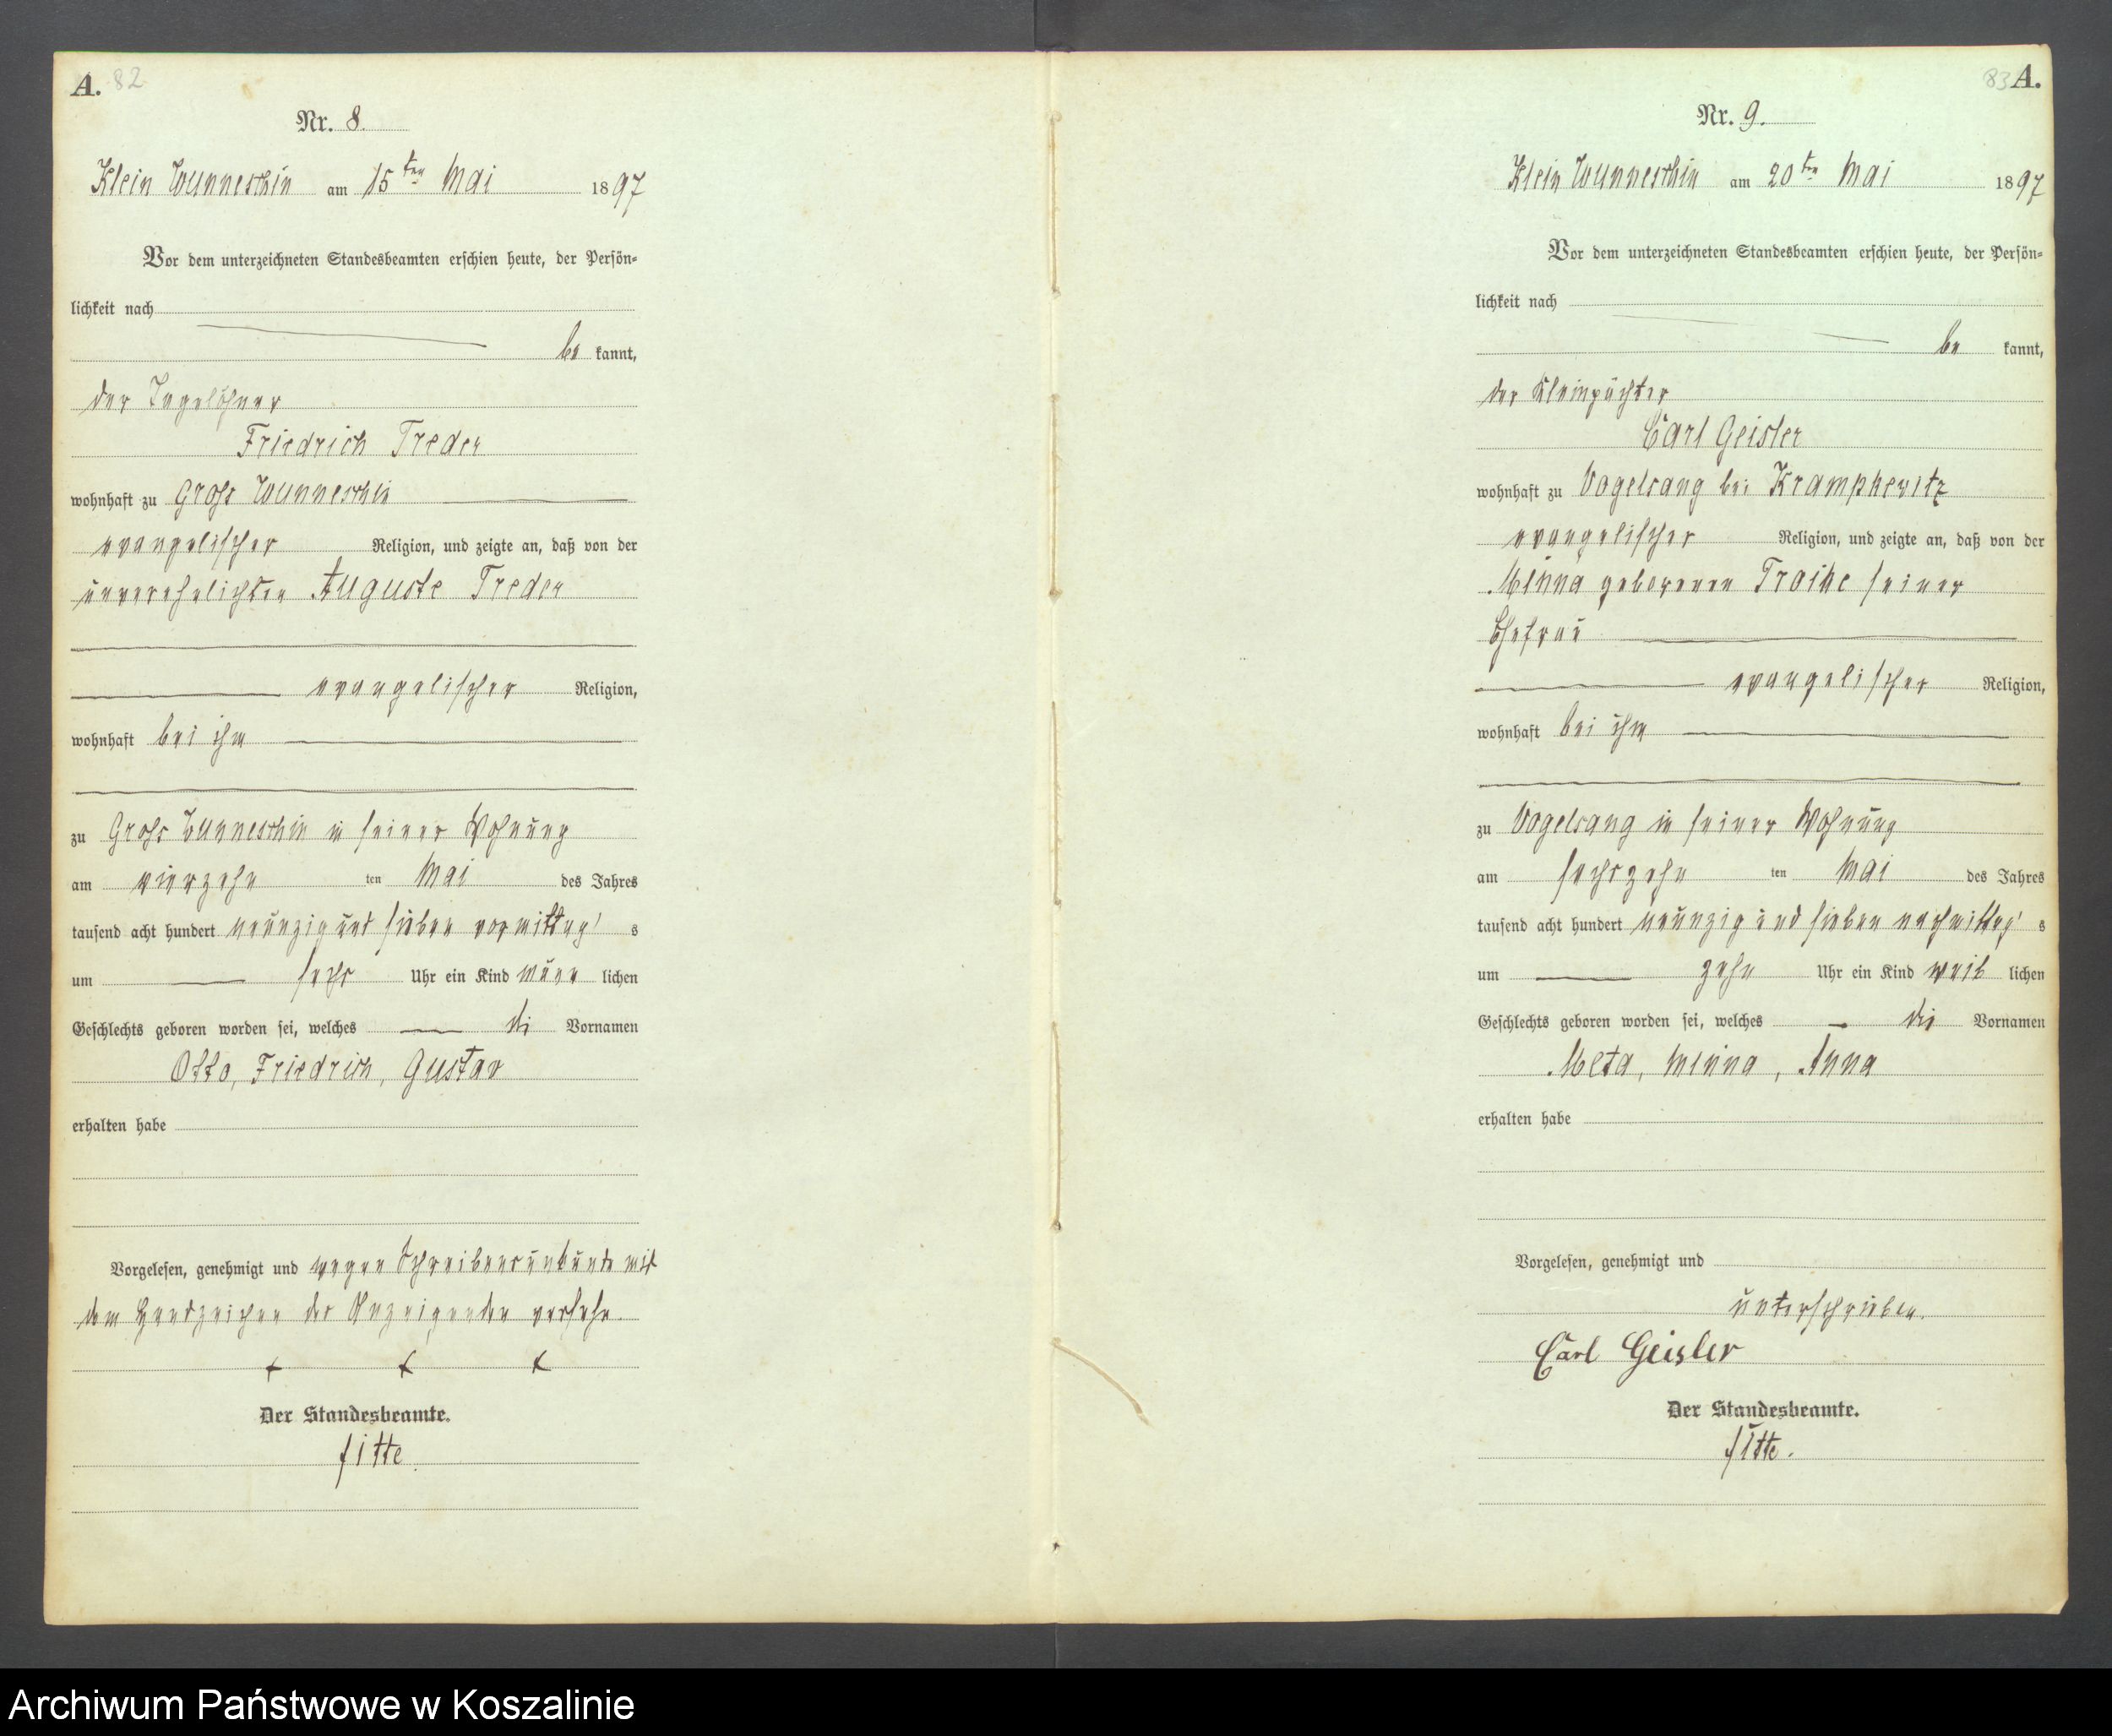 A. 82
Nr. 8.
Klein Wunneschin am 15ten Mai 1897
Vor dem unterzeichneten Standesbeamten erschien heute, der Persön-
lichkeit nach
be kannt,
der Tagelöhner
Friedrich Treder
wohnhaft zu Groß Wunneschin
evangelischer Religion, und zeigte an, daß von der
unverehelichten Auguste Treder
evangelischer Religion,
wohnhaft bei ihm
zu Groß Wunneschin in seiner Wohnung
am vierzehn ten Mai des Jahres
tausend acht hundert neunzig und sieben vormittags
um sechs Uhr ein Kind männ lichen
Geschlechts geboren worden sei, welches die Vornamen
Otto, Friedrich, Gustav
erhalten habe
Vorgelesen, genehmigt und wegen Schreibensunkunde mit
dem Handzeichen des Anzeigenden versehn.
+ + +
Der Standesbeamte.
fitte
83 A.
Nr. 9.
Klein Wunneschin am 20ten Mai 1897
Vor dem unterzeichneten Standesbeamten erschien heute, der Persön-
lichkeit nach
be kannt,
der Kleinpächter
Carl Geisler
wohnhaft zu Vogelsang bei Krampkewitz
evangelischer Religion, und zeigte an, daß von der
Minna geborenen Troike seiner
Ehefrau
evangelischer Religion,
wohnhaft bei ihm
zu Vogelsang in seiner Wohnung
am sechszehn ten Mai des Jahres
tausend acht hundert neunzig und sieben nachmittags
um zehn Uhr ein Kind weib lichen
Geschlechts geboren worden sei, welches die Vornamen
Meta, Minna, Anna
erhalten habe
Vorgelesen, genehmigt und
unterschrieben.
Carl Geisler
Der Standesbeamte.
fitte.
Archiwum Państwowe w Koszalinie